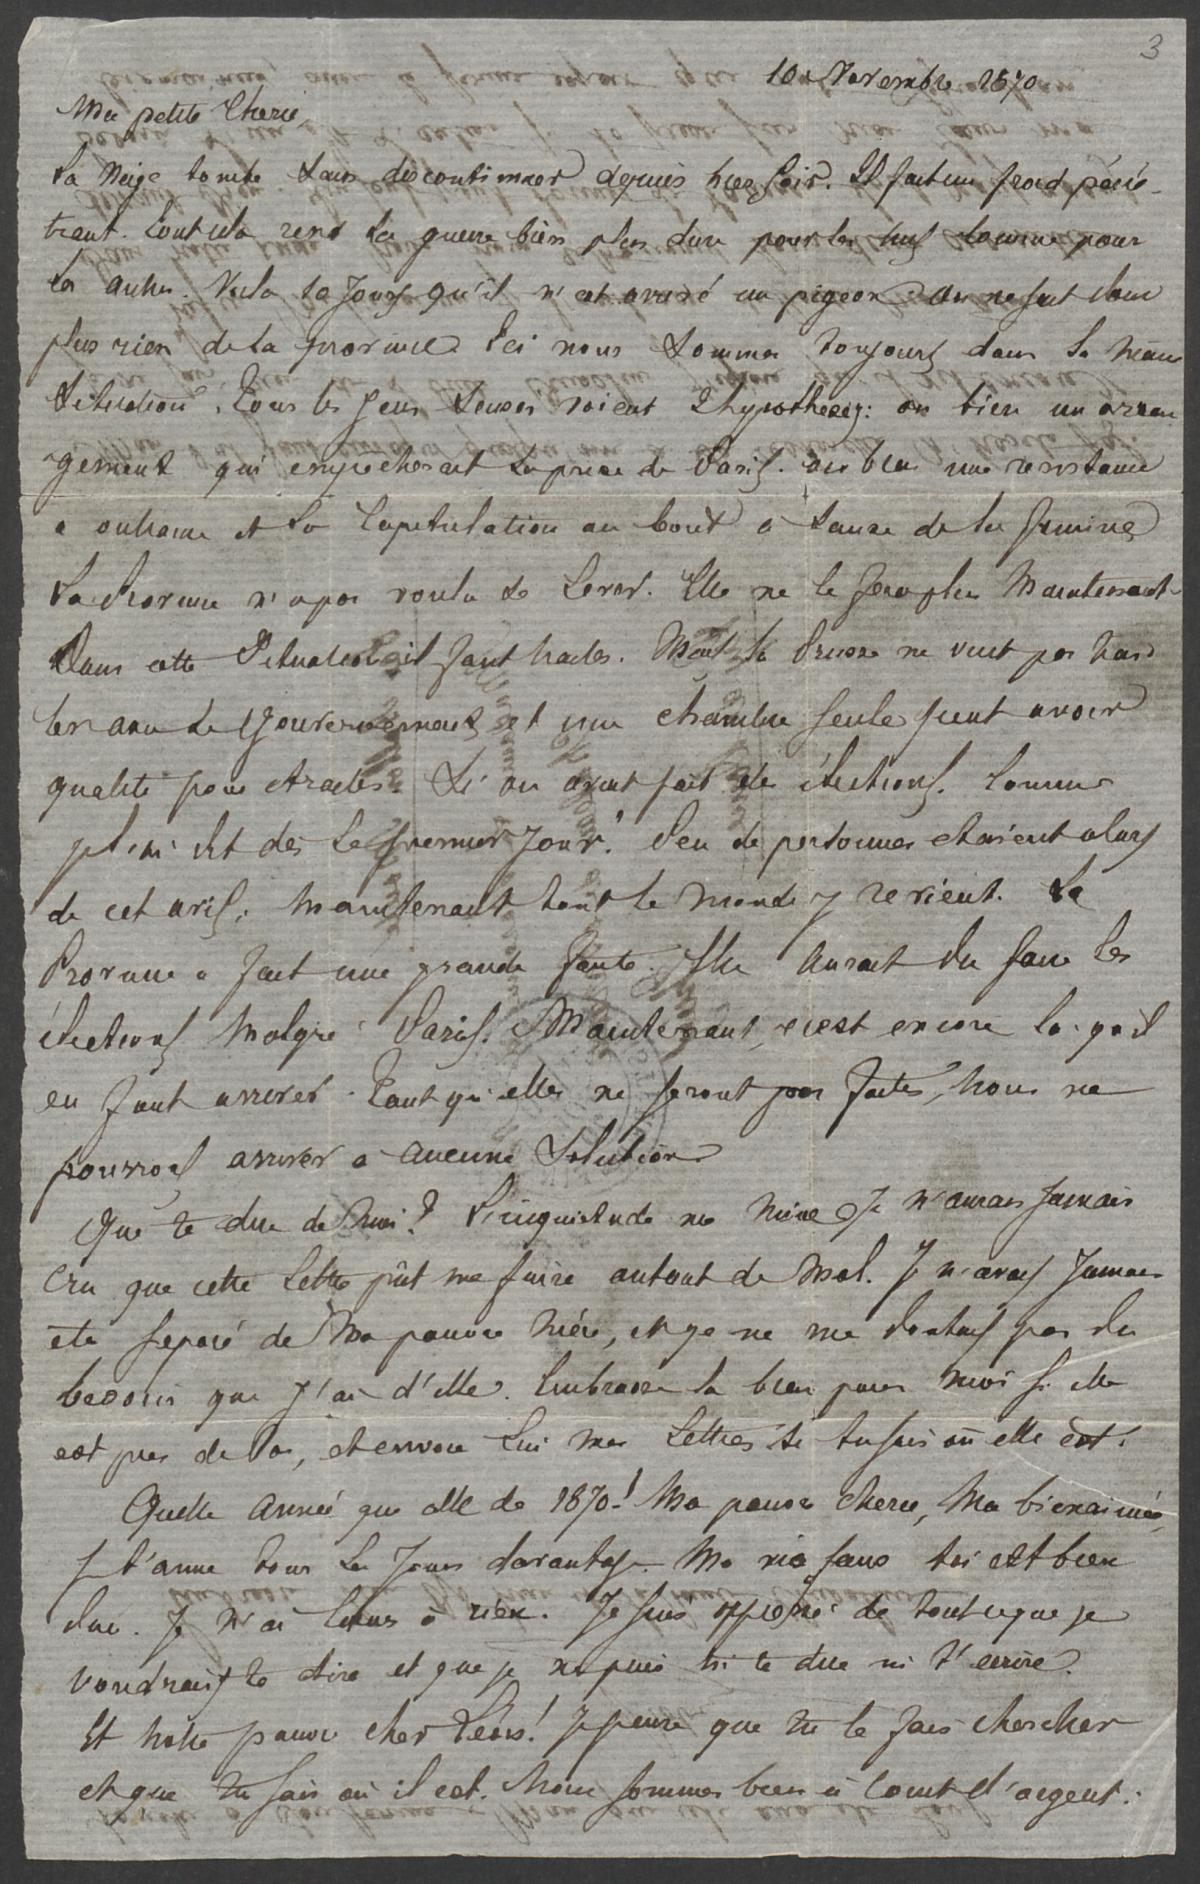 3
10 Novembre 1870
Ma petite Cherie,
La Neige tombe sans discontinuer depuis hier soir. Il fait un froid péné-
trant. Tout cela rend la guerre bien plus dure pour les uns comme pour
les autres. Voila 10 Jours qu'il n'est arrivé un pigeon. On ne sait donc
plus rien de la province. Ici nous sommes toujours dans la meme
situation. Tous les gens sensés voient 2 hypotheses: ou bien un arran
gement qui empecherait la prise de Paris. ou bien une resistance
a outrance et la Capitulation au bout a cause de la famine
La Province n'a pas voulu se lever. Elle ne le fera plus Maintenant.
Dans cette Situation il faut traiter. Mais la Prusse ne veut pas trai
ter avec le Gouvernement et une chambre seule peut avoir
qualité pour traiter. Si on avait fait des élections. Comme
je l'ai dit dès le premier Jour! Peu de personnes etaient alors
de cet avis. Maintenant tout le Monde y revient. La
Province a fait une grande faute. Elle aurait du faire les
élections Malgré Paris. Maintenant, c'est encore la qu'il
en faut arriver. Tant qu'elles ne seront pas faites, nous ne
pourrons arriver a aucune Solution
Que te dire de Moi? L'inquietude me mine. Je n'aurais Jamais
Cru que cette Lettre pût me faire autant de Mal. Je n'avais Jamais
eté séparé de Ma pauvre Mère, et je ne me doutais pas du
besoin que J'ai d'elle. Embrasse la bien pour moi si elle
est pres de toi, et envoie lui mes Lettres si tu sais où elle est.
Quelle Année que celle de 1870! Ma pauvre cherie, Ma bienaimée,
Je t'aime tous les Jours davantage. Ma vie sans toi est bien
dure. Je n'ai Gous à rien. Je suis oppressé de tout ce que je
voudrais te dire et que je ne puis ni te dire ni t'ecrire.
Et notre pauvre cher Léon! Je pense que tu le fais chercher
et que tu sais où il est. Nous sommes bien à Court d'argent.